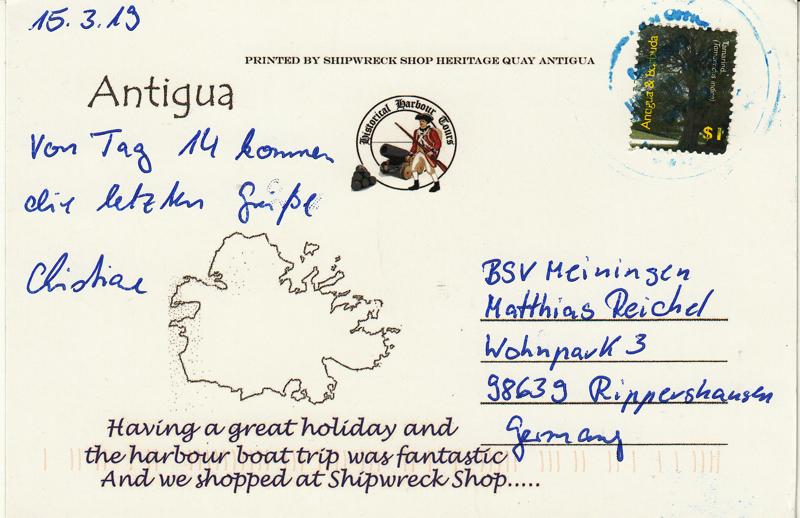 15.3.19
PRINTED BY SHIPWRECK SHOP HERITAGE QUAY ANTIGUA
Antigua
Historical Harbour Tours
Antigua & Barbuda
Tamarind
(Tamarindus indica)
$1
Von Tag 14 kommen
die letzten Grüße
Christiane
BSV Meiningen
Matthias Reichel
Wohnpark 3
98639 Rippershausen
Germany
Having a great holiday and
the harbour boat trip was fantastic
And we shopped at Shipwreck Shop.....